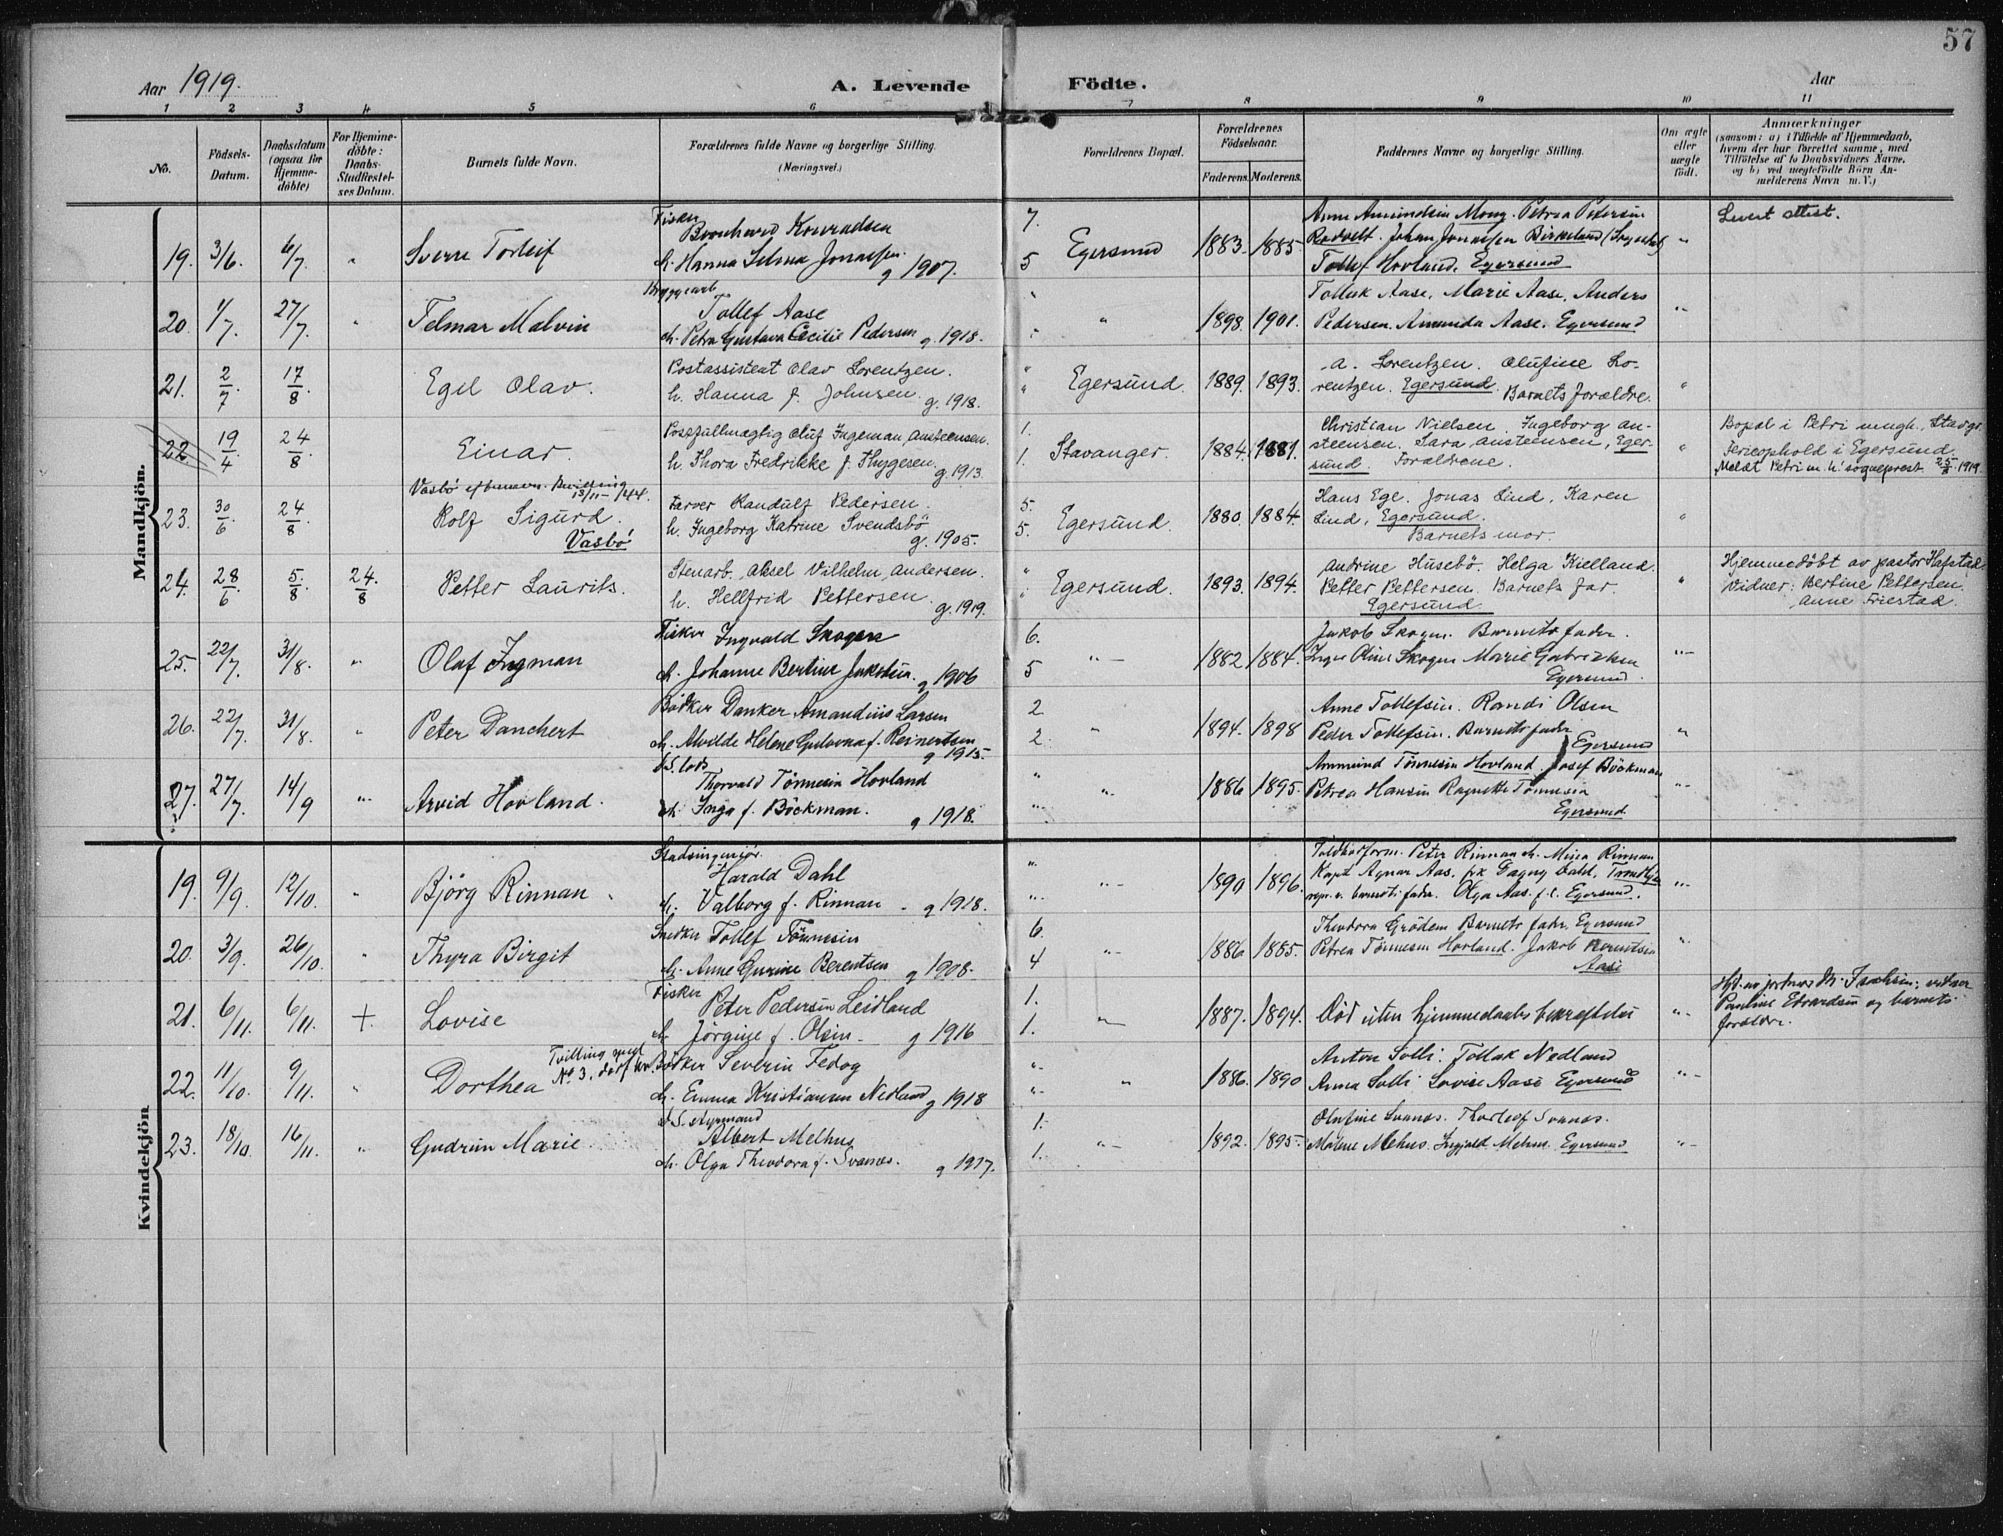 57
Aar 1919.
A. Levende Födte.
Aar
1 2 3 4 5 6 7 8 9 10 11
No.
Födsels-
Datum.
Daabsdatum
(ogsaa for
Hjemme-
döbte)
For Hjemme-
döbte:
Daabs-
Stadfæstel-
ses Datum.
Barnets fulde Navn.
Forældrenes fulde Navne og borgerlige Stilling.
(Næringsvei.)
Forældrenes Bopæl.
Forældrenes
Födselsaar.
Faderens. Moderens.
Faddernes Navne og borgerlige Stilling.
Om ægte
eller
uægte
födt.
Anmærkninger
(saasom: a) i Tilfælde af Hjemmedaab,
hvem der har forrettet samme, med
Tilföielse af to Daabsvidners Navne.
og b) ved uægtefödte Börn An-
melderens Navn m. V.)
Mandkjön.
19. 3/6. 6/7. " Sverre Torleif
Fisker
Bernhard Konradsen
h. Hanna Selma Jonassen. g 1907.
7.
5 Egersund 1883. 1885.
Anne Amundsen Mong. Petrea Petersen
Rodvelt. Johan Jonassen Birkeland
Tollef Hovland. Egersund
"
Levert attest.
20. 1/7. 27/7. " Telmar Malvin
Bryggearb.
Tollef Aase
h. Petra Gustava Cecilie Pedersen g. 1918.
" " 1898. 1901.
Tollak Aase. Marie Aase. Anders
Pedersen. Amanda Aase. Egersund
"
21. 2/7 17/8 Egil Olav.
Postassistent Olav Lorentzen.
h. Hanna f. Johnsen. g. 1918.
" Egersund. 1889. 1893.
A. Lorentzen. Olufine Lo-
rentzen. Egersund. Barnets forældre.
"
22. 19/4 24/8 Einar.
Postfullmægtig Oluf Ingeman Austeensen.
h. Thora Fredrikke f. Thygesen. g. 1913.
1.
1. Stavanger. 1884. 1881.
Christian Nielsen. Ingeborg Au-
steensen. Sara Austeensen, Eger-
sund. Forældrene.
"
Bopæl i Petri mngh. Stavgr.
Ferieophold i Egersund.
Meldt Petri m. h. sogneprest 25/8 1919.
23. 30/6. 24/8. Vasbö 15/11-/44.
Rolf Sigurd.
Vasbö
Farver Randulf Pedersen.
h. Ingeborg Katrine Svendsbö g. 1905.
5.
5. Egersund. 1880. 1884.
Hans Ege. Jonas Lind. Karen
Lind, Egersund.
Barnets mor.
"
24. 28/6 5/8. 24/8 Petter Laurits.
Stenarb. Aksel Vilhelm Andersen.
h. Hellfrid Pettersen. g. 1919.
" Egersund. 1893. 1894.
Andrine Husebö. Helga Kielland.
Petter Pettersen. Barnets far.
Egersund
"
Hjemmedöbt av pastor Hafstad
Vidner: Bertine Pettersen,
Anne Friestad.
25. 22/7 31/8. " Olaf Ingman
Fisker Ingvald Skogen
h. Johanne Bertine Jakobsen. g 1906
6.
5 " 1882. 1884.
Jakob Skogen. Barnets fader.
Inger Oline Skogen Marie Gabrielsen
Egersund.
"
26. 22/7. 31/8. " Peter Danchert
Bödker Danker Amandius Larsen
h. Alvilde Helene Gulovna f. Reinertsen g 1915.
2
2. " 1894. 1898
Anne Tollefsen. Randi Olsen
Peder Tollefsen. Barnets fader
Egersund
"
27. 27/7. 14/9 " Arvid Hovland.
d.S. lods
Thorvald Tönnesen Hovland
h. Inga f. Böckman. g 1918.
" " 1886 1895.
Ammund Tönnesen Hovland. Josef Böckman
Petrea Hansen Ragnette Tönnesen
Egersund
"
Kvindekjön
19. 9/9. 12/10. " Björg Rinnan
Stadsingeniör.
Harald Dahl
h. Valborg f. Rinnan g 1918.
" " 1890 1896.
Peter Rinnan h. Mina Rinnan
Kapt. Agnar Aas. frk Dagny Dahl, Trondhjem
barnets fader. Olga Aas. Egersund.
"
20. 3/9. 26/10. " Thyra Birgit
Snedker Tollef Tönnesen
h. Anne Gurine Berentsen g 1908.
6.
4 " 1886 1885.
Theodora Grödem Barnets fader, Egersund
Petrea Tönnesen Hovland. Jakob Berentsen
Aase
"
21. 6/11. 6/11. + Lovise
Fisker
Peter Pedersen Leidland
h. Jörgine f. Olsen. g 1916
1.
1. " 1887. 1894.
Död uten hjemmedaabs bekræftelse
"
Hjd. av jordmor Isachsen, vidner
Pauline Edvardsen og barnets
forældre.
22. 11/10. 9/11. " Dorthea
Tvilling med
No 3. dödf kv.
Bödker Severin Fedog
h. Emma Kristiansen Nedland g 1918
" " 1886. 1890
Anton Solli. Tollak Nedland
Anna Solli Lovise Aase Egersund
"
23. 18/10. 16/11. " Gudrun Marie
d.S. styrmand
Albert Melhus
h. Olga Theodora f. Svanæs. g 1917.
1.
1. " 1892. 1895.
Olufine Svanæs. Thorleif Svanæs.
Malene Mehus. Ingvald Mehus. Egersund
"